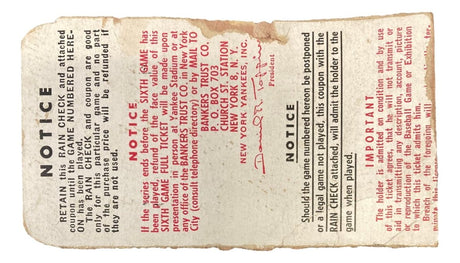 NOTICE
RETAIN this RAIN CHECK and attached
coupon until the GAME NUMBERED HERE-
ON has been played.
The RAIN CHECK and coupon are good
only for this particular game and no part
of the purchase price will be refunded if
they are not used.
NOTICE
If the series ends before the SIXTH GAME has
been played, refund of the face value of this
SIXTH GAME FULL TICKET will be made upon
presentation in person at Yankee Stadium or at
any office of the BANKERS TRUST CO. in New York
City (consult telephone directory) or by MAIL TO
BANKERS TRUST CO.
P. O. BOX 703
CHURCH ST. STATION
NEW YORK 8, N. Y.
NEW YORK YANKEES, INC.
President
NOTICE
Should the game numbered hereon be postponed
or a legal game not played, this coupon with the
RAIN CHECK attached, will admit the holder to the
game when played.
IMPORTANT
The holder is admitted on condition and by use
of this ticket agrees, that he will not transmit or
aid in transmitting any description, account, picture
or reproduction of the Baseball Game or Exhibition
to which this ticket admits him.
Breach of the foregoing will